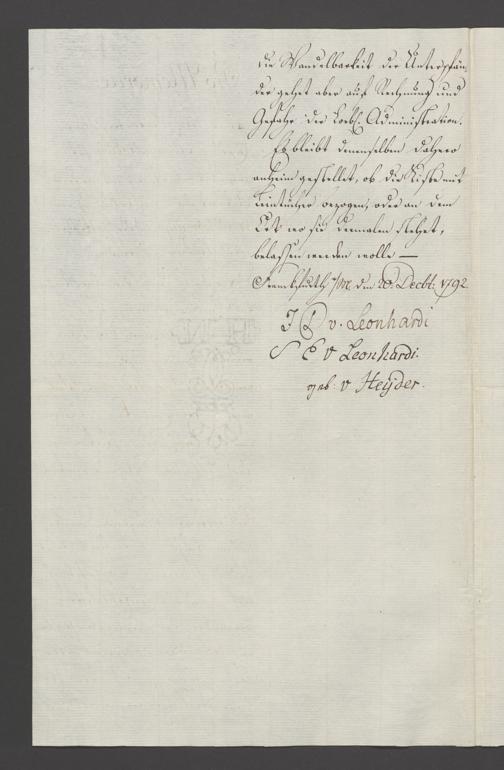 die Wandelbarkeit der Unterpfän,
der gehet aber auf Rechnung und
Gefahr der Administration.
Es bleibt denenselben dahero
anheim gestellet, ob die Kiste mit
bezogen, oder an dem
Ort wo sie dermalen stehet,
belassen werden wolle —
Frankfurth a/M. den 20. Decbr. 1792
J P v. Leonhardi
S E v Leonhardi.
geb. v Heyder.